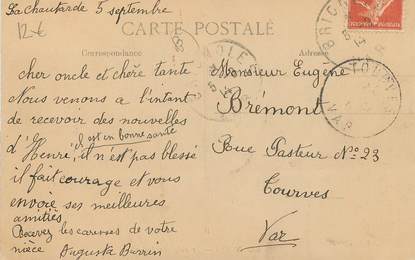 La Chautarde 5 septembre
12€
CARTE POSTALE
Correspondance
Adresse
cher oncle et chère tante
Nous venons a l'intant
de recevoir des nouvelles
d'Henri, il est en bonne santé
il n'est pas blessé
il fait courage et vous
envoie ses meilleures
amitiés
Recevez les caresses de votre
nièce Augusta Burrin
Monsieur Eugène
Brémont
Rue Pasteur N° 23
Tourves
Var
TOURVES
VAR